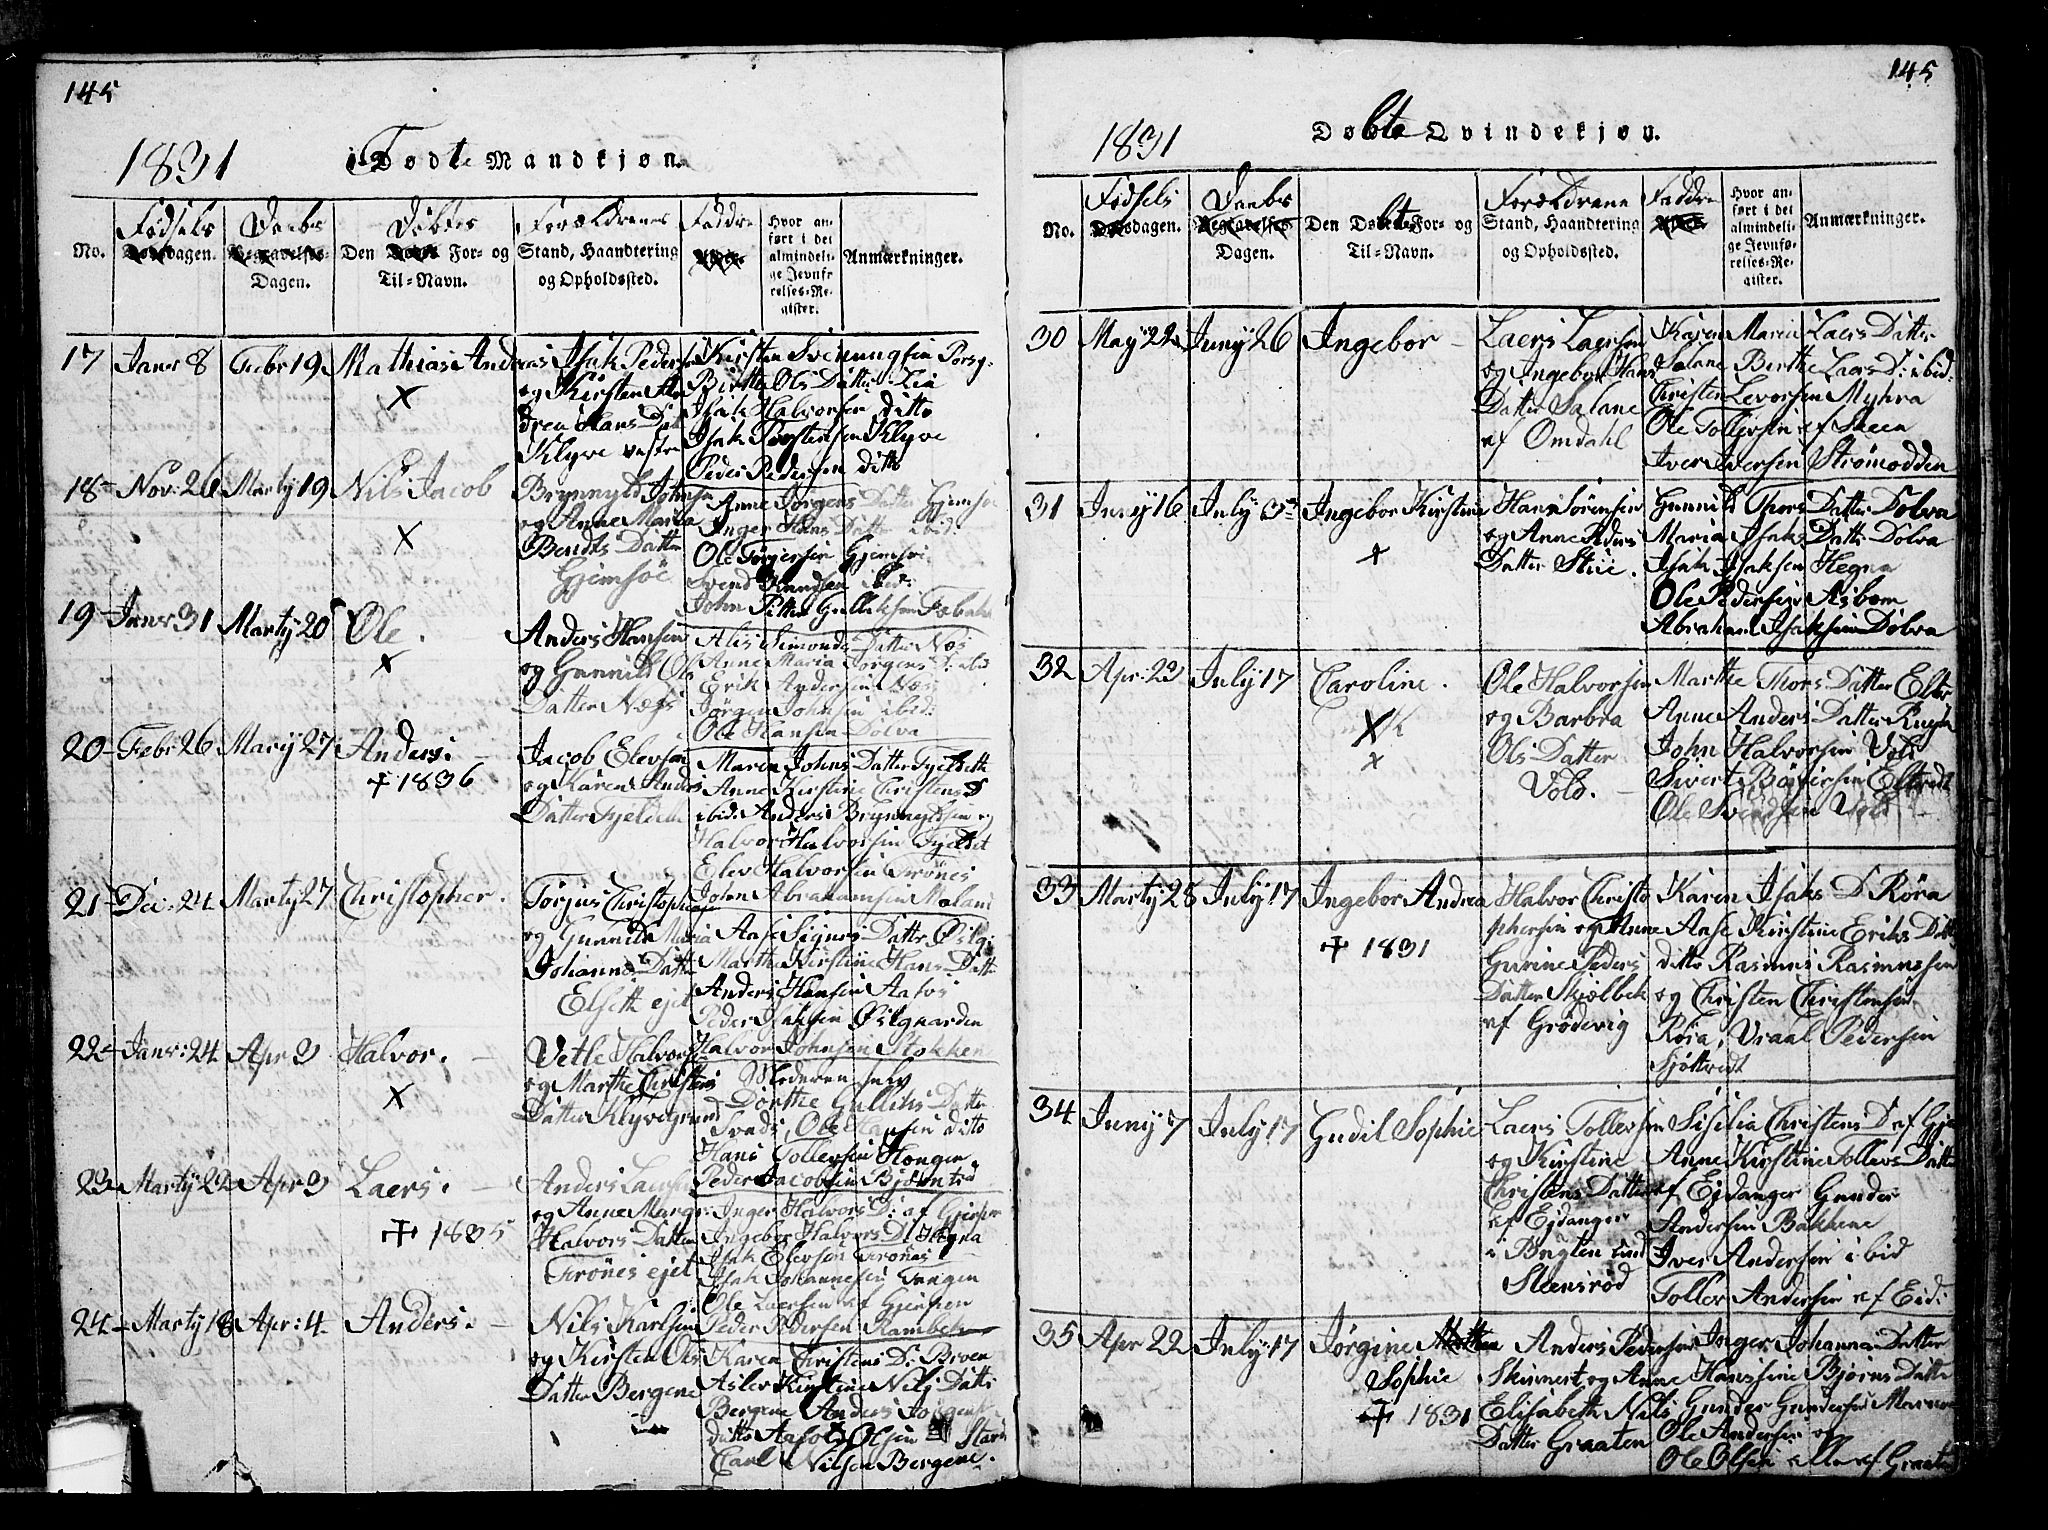 145
1831
Födte Mandkjøn.
No.
Födsels Dagen.
Daabs Dagen.
Den Döbtes For- og Til-Navn.
Forældrenes Stand, Haandtering og Opholdssted.
Faddre
Hvor anført i det almindelige Jevnførelses-Register.
Anmærkninger.
17 Janr 8 Febr 19 Mathias Andreas
×
Isak Pedersen
og Kirsten An
drea Hans Dat
Klyve vestre
Kirsten Svenungsen Porsg.
Birthe Ols Datter Lia
Isak Halvorsen ditto
Isak Torstensen Klyve
Peder Pedersen ditto
18 Nov: 26 Marty 19 Nils Jacob
×
Brynnyld Johnsen
og Anne Maria
Bendts Datter
Gjemsöe
Anne Jörgens Datter Gjemsöe
Inger Hans Datter ibid:
Ole Törgersen Gjemsöe
Svend Knudsen ibid:
John Petter Gulliksen
19 Janr 31 Marty 20 Ole.
×
Anders Hansen
og Gunnild Ols
Datter Næss
Alis Simonds Datter Næs
Anne Maria Jörgens D: ibid
Erik Andersen Næs
Jörgen Johnsen ibid:
Ole Hansen Dolva
20 Febr 26 Marty 27 Anders.
† 1836
Jacob Elevsen
og Karen Anders
Datter
Maren Johns Datter
Anne Kirstine Christens D
ibid: Anders Brynnyldsen og
Halvor Halvorsen
Elev Halvorsen Grönes
21 Dec: 24 Marty 27 Christopher.
Törjus Christophers
og Gunnild Maria
Johannes Datter
Elseth ejet
John Abrahamsen
Aase Signes Datter
Marthe Kirstine Hans Datt
Anders Hansen
Peder Isaksen Östgaarden
22 Janr: 24 Apr 3 Halvor.
×
Vetle Halvorsen
og Marthe Christens
Datter Klyvegrund
Halvor Johnsen Stokken
Moderen selv
Dorthe Gulliks Datter
Ole Hansen ditto
Hans Tollefsen
Peder Jacobsen
23 Marty 22 Apr 3 Laers.
† 1835
Anders Laersen
og Anne Margr
Halvors Datter
Grönes ejet
Inger Halvors D: af Gjerpen
Ingebor Halvors D. Hegna
Isak Elevsen Grönes
Isak Johannesen Tangen
Ole Laersen af Gjerpen
24 Marty 18 Apr: 4 Anders.
Nils Karlsen
og Kirsten Ols
Datter Bergene
Peder Pedersen Rambek
Karen Christens D:
Kirstine Nils Datt
Bergene Anders
ditto Olsen
Carl Nilsen Bergene.
145
1831
Döbte Qvindekjøn.
No.
Födsels Dagen.
Daabs Dagen.
Den Döbtes For- og Til-Navn.
Forældrene Stand, Haandtering og Opholdssted.
Faddre
Hvor anført i det almindelige Jevnførelses-Register.
Anmærkninger.
30 May 22 Juny 26 Ingebor
Laers Laersen
og Ingebor Hans
Datter Salane
af Omdahl
Karen Maria Laers Datter
Salane Birthe Laers D: ibid:
Christen Levorsen Myhra
Ole Tollefsen af Skeen
Iver Iversen Strömodden
31 Juny 16 July 3 Ingebor Kirstine
×
Hans Sörensen
og Anne Peders
Datter
Gunnild Thors Datter Dolva
Maria Isaks Datt: Dolva
Isak Isaksen Hegna
Ole Pedersen
Abraham Isaksen Dolva
32 Apr: 23 July 17 Caroline.
×
×
Ole Halvorsen
og Barbra
Ols Datter
Vold.
Marthe Thors Datter
Anne Anders Datter
John Halvorsen Vold
Sivert
Ole Svendsen Vold
33 Marty 28 July 17 Ingebor Andrea
† 1831
Halvor Christo
phersen og Anne
Gurine Peders
Datter Skiolbek
af Grödevig
Karen Isaks D Röra
Aase Kirstine Eriks Datt
ditto Rasmus Rasmussen
og Christen Christensen
Röra, Vraal Pedersen
34 Juny 7 July 17 Gudil Sophie
Laers Tollefsen
og Kirstine
Christens Datter
af Ejdanger
i Bugten und
Steensröd
Sisilia Christens D af
Anne Kirstine Tollefs Datt
af Ejdanger Gunder
Andersen Bakkene
Iver Andersen ibid
Toller Andersen af Eid:
35 Apr 22 July 17 Jörgine
Sophie
† 1831
Anders Pedersen
Skinnert og Anne
Elisabeth Nils
Datter Graaten
Inger Johanne Datter
Hanssine Björns Datte
Gunder Gundersen
Ole Andersen og
Ole Olsen alle af Graaten